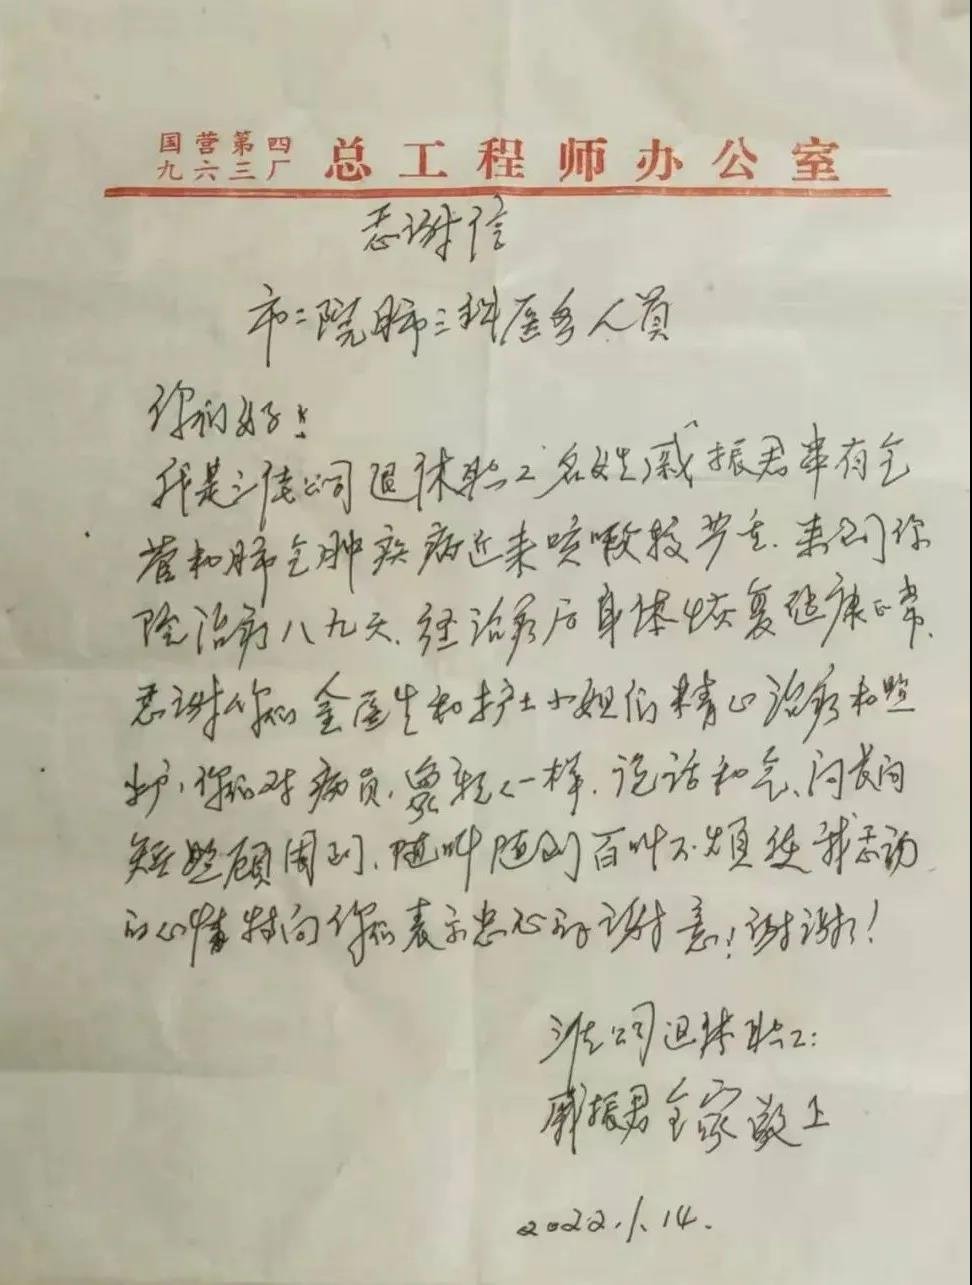 国营第四九六三厂 总工程师办公室
感谢信
市二院肺三科医务人员
你们好!
我是三佳公司退休职工名姓戚振君患有气
管和肺气肿疾病近来咳嗽较严重.来到你
院治疗八九天.经治疗后身体恢复健康正常.
感谢你们全医生和护士小姐们精心治疗和照
护,你们对病员,象亲人一样.说话和气、问长问
短照顾周到、随叫随到百叫不烦使我感动
的心情特向你们表示忠心的谢意!谢谢!
三佳公司退休职工:
戚振君全家敬上
2022.1.14.